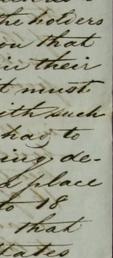 the holders
you that
in their
t must
with such
had to
ing de-
place
to 18
that
tates